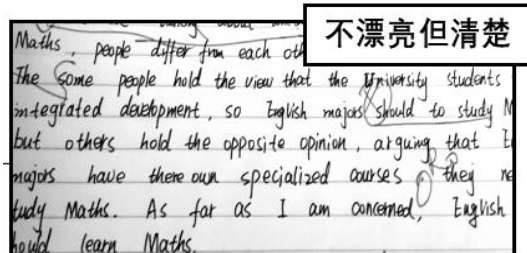 不漂亮但清楚
Maths, people differ from each oth
The Some people hold the view that the University students
integrated development, so English majors should to study M
but others hold the opposite opinion, arguing that E
majors have there own specialized courses they ne
tudy Maths. As far as I am concerned, English
hould learn Maths.